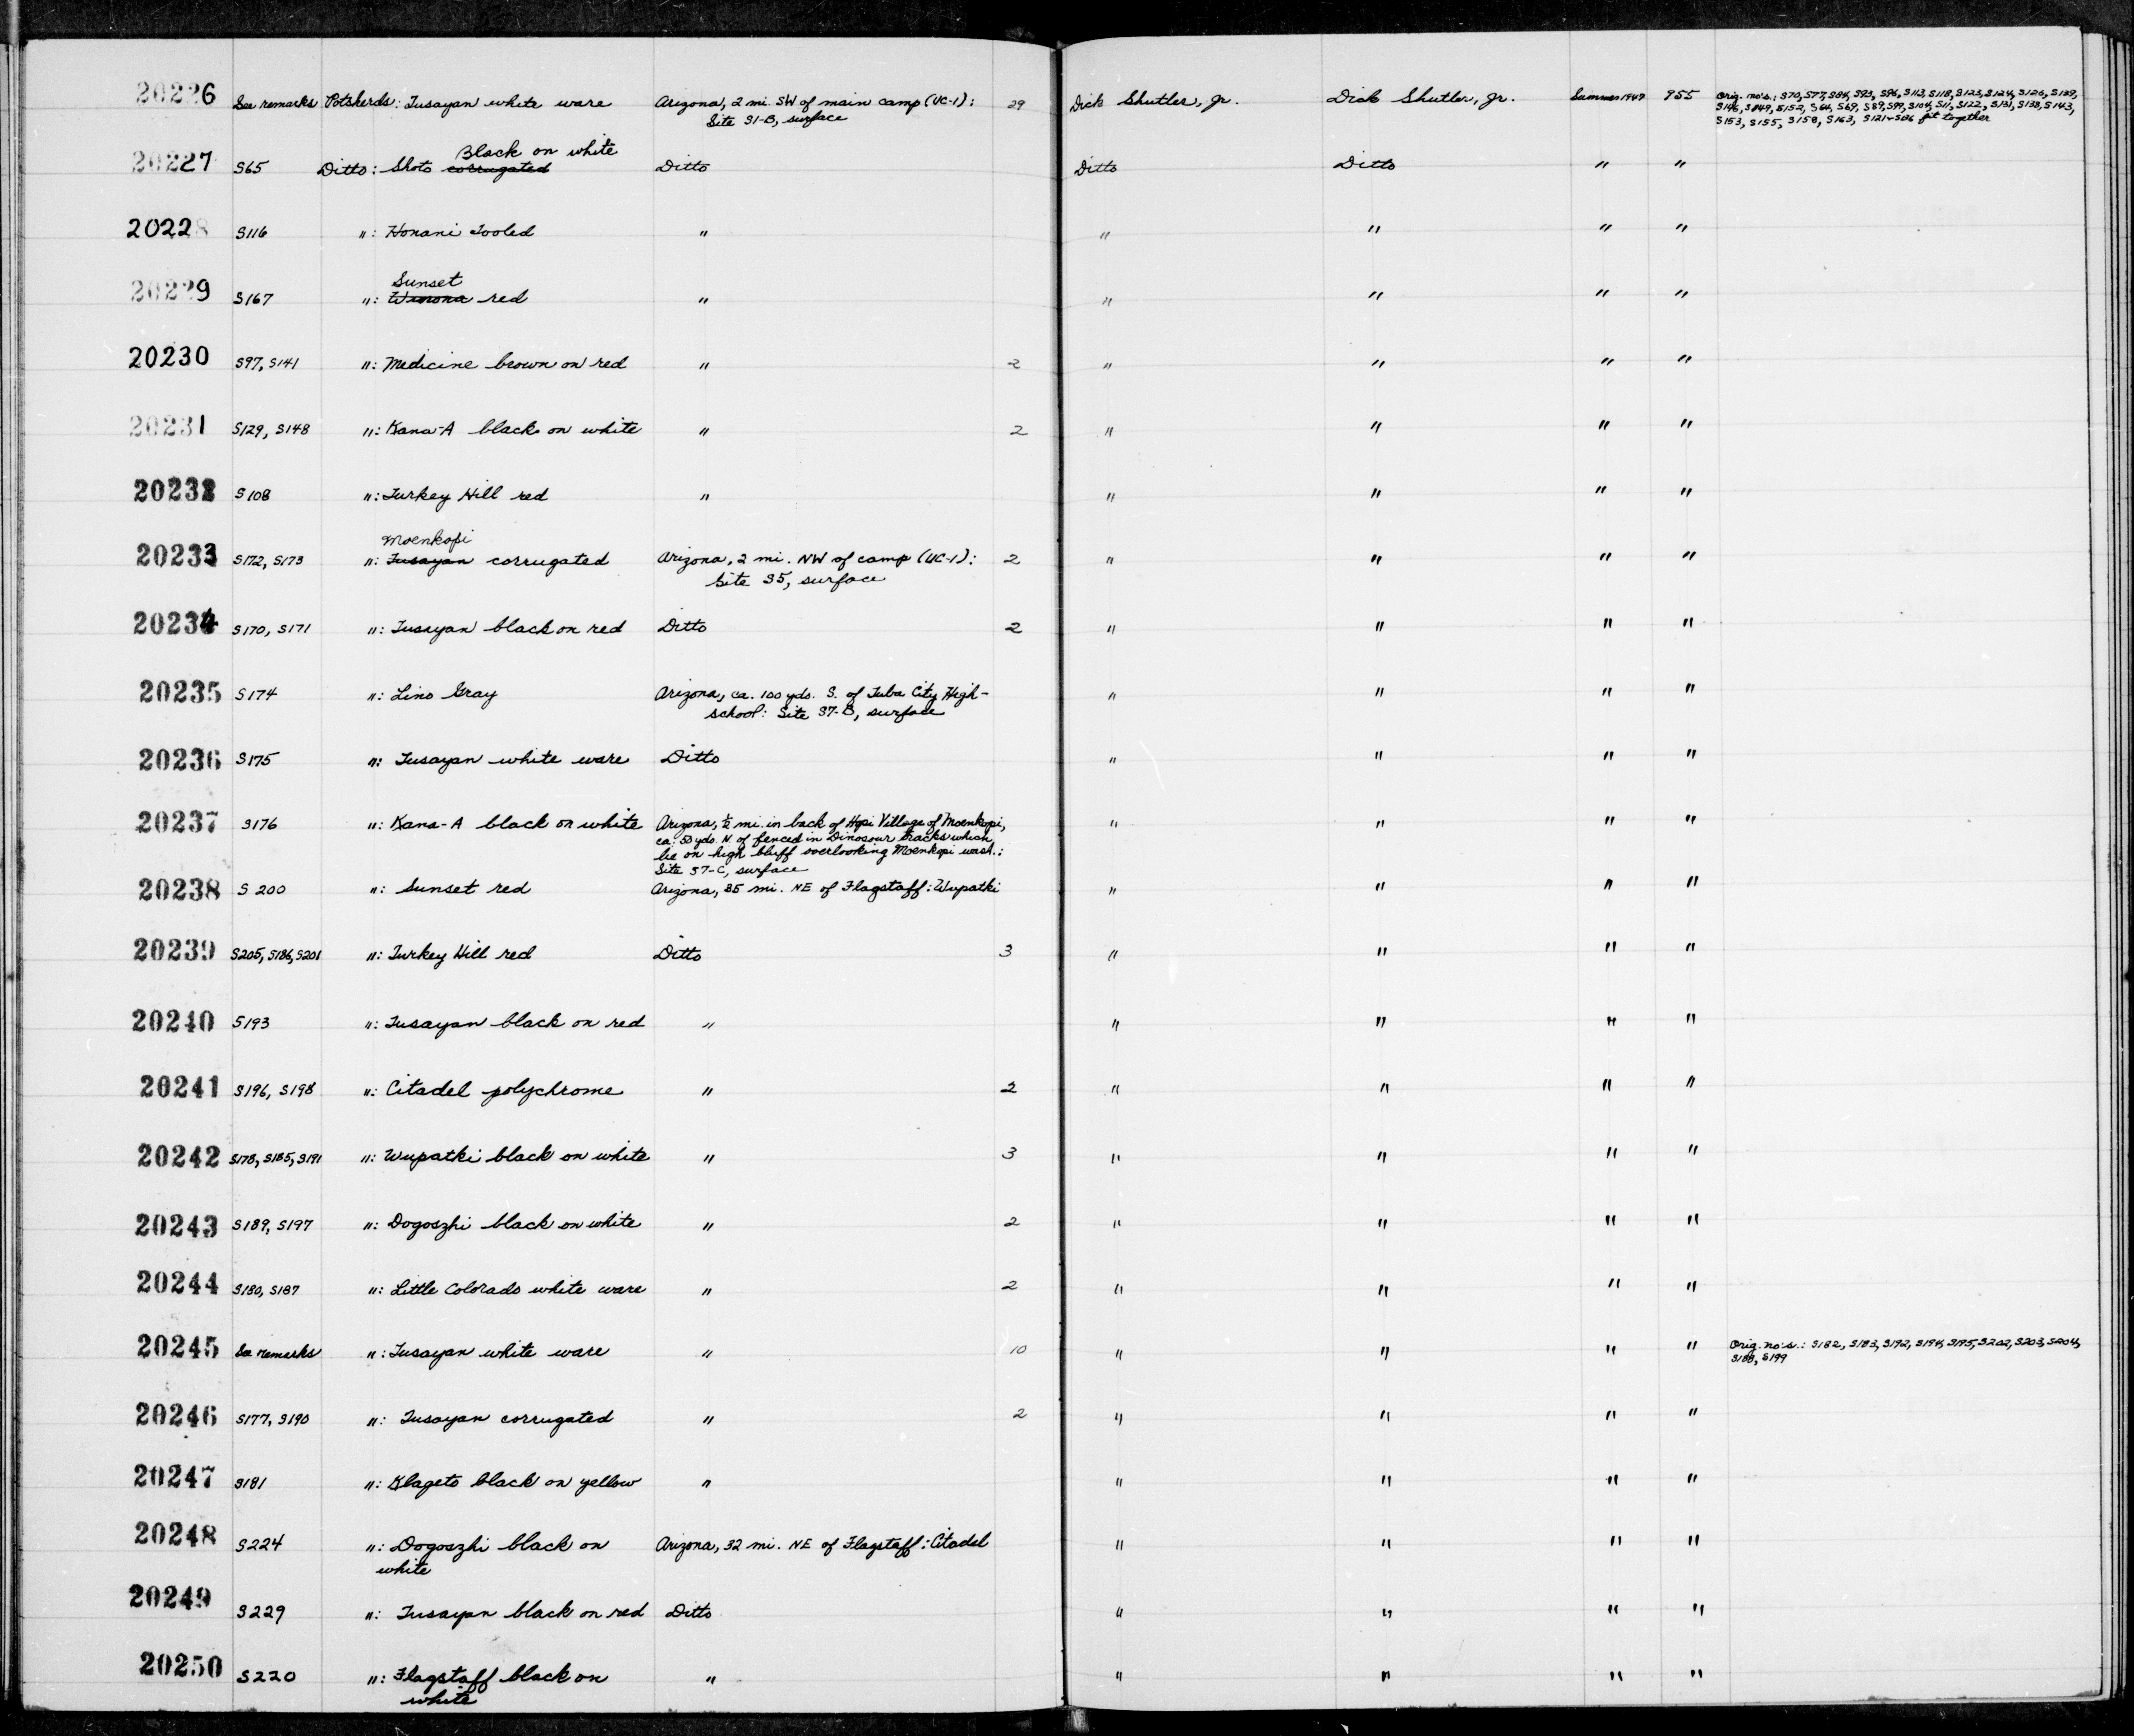 20226 See remarks Potsherds: Tusayan white ware Arizona, 2 mi. SW of main camp (UC-1): 29 Dick Shutler, Jr. Dick Shutler, Jr. Summer 1949 955 Orig. no's.: S70, S77, S84, S93, S96, S113, S118, S123, S124, S126, S139,
Site S1-B, surface S146, S149, S152, S64, S69, S89, S99, S104, S11, S122, S131, S138, S143,
S153, S155, S158, S163, S121+S106 fit together
Black on white
20227 S65 Ditto: Shoto corrugated Ditto Ditto Ditto " "
20228 S116 ": Honani Tooled " " " " "
Sunset
20229 S167 ": Winona red " " " " "
20230 S97, S141 ": Medicine brown on red " 2 " " " "
20231 S129, S148 ": Kana-A black on white " 2 " " " "
20232 S108 ": Turkey Hill red " " " " "
Moenkopi
20233 S172, S173 ": Tusayan corrugated Arizona, 2 mi. NW of camp (UC-1): 2 " " " "
Site S5, surface
20234 S170, S171 ": Tusayan black on red Ditto 2 " " " "
20235 S174 ": Lino Gray Arizona, ca. 100 yds. S. of Tuba City High- " " " "
school: Site S7-B, surface
20236 S175 ": Tusayan white ware Ditto " " " "
20237 S176 ": Kana-A black on white Arizona, ½ mi. in back of Hopi Village of Moenkopi, " " " "
ca. 50 yds. N. of fenced in Dinosaur tracks which
lie on high bluff overlooking Moenkopi wash.:
Site S7-C, surface
20238 S200 ": Sunset red Arizona, 35 mi. NE of Flagstaff: Wupatki " " " "
20239 S205, S186, S201 ": Turkey Hill red Ditto 3 " " " "
20240 S193 ": Tusayan black on red " " " " "
20241 S196, S198 ": Citadel polychrome " 2 " " " "
20242 S178, S185, S191 ": Wupatki black on white " 3 " " " "
20243 S189, S197 ": Dogoszhi black on white " 2 " " " "
20244 S180, S187 ": Little Colorado white ware " 2 " " " "
20245 See remarks ": Tusayan white ware " 10 " " " " Orig. no's.: S182, S183, S192, S194, S195, S202, S203, S204,
S188, S199
20246 S177, S190 ": Tusayan corrugated " 2 " " " "
20247 S181 ": Klageto black on yellow " " " " "
20248 S224 ": Dogoszhi black on Arizona, 32 mi. NE of Flagstaff: Citadel " " " "
white
20249 S229 ": Tusayan black on red Ditto " " " "
20250 S220 ": Flagstaff black on " " " " "
white